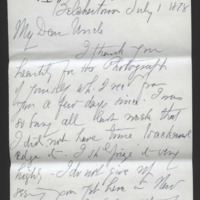 Belchertown July 1 1878
My Dear Uncle
I thank you
heartily for the Photograph
of yourself wh. I rec'd from
you a few days since. I was
so busy all last week that
I did not have time to acknowl
edge it. I sh'l prize it very
highly. I do not give up
seeing you yet here in New